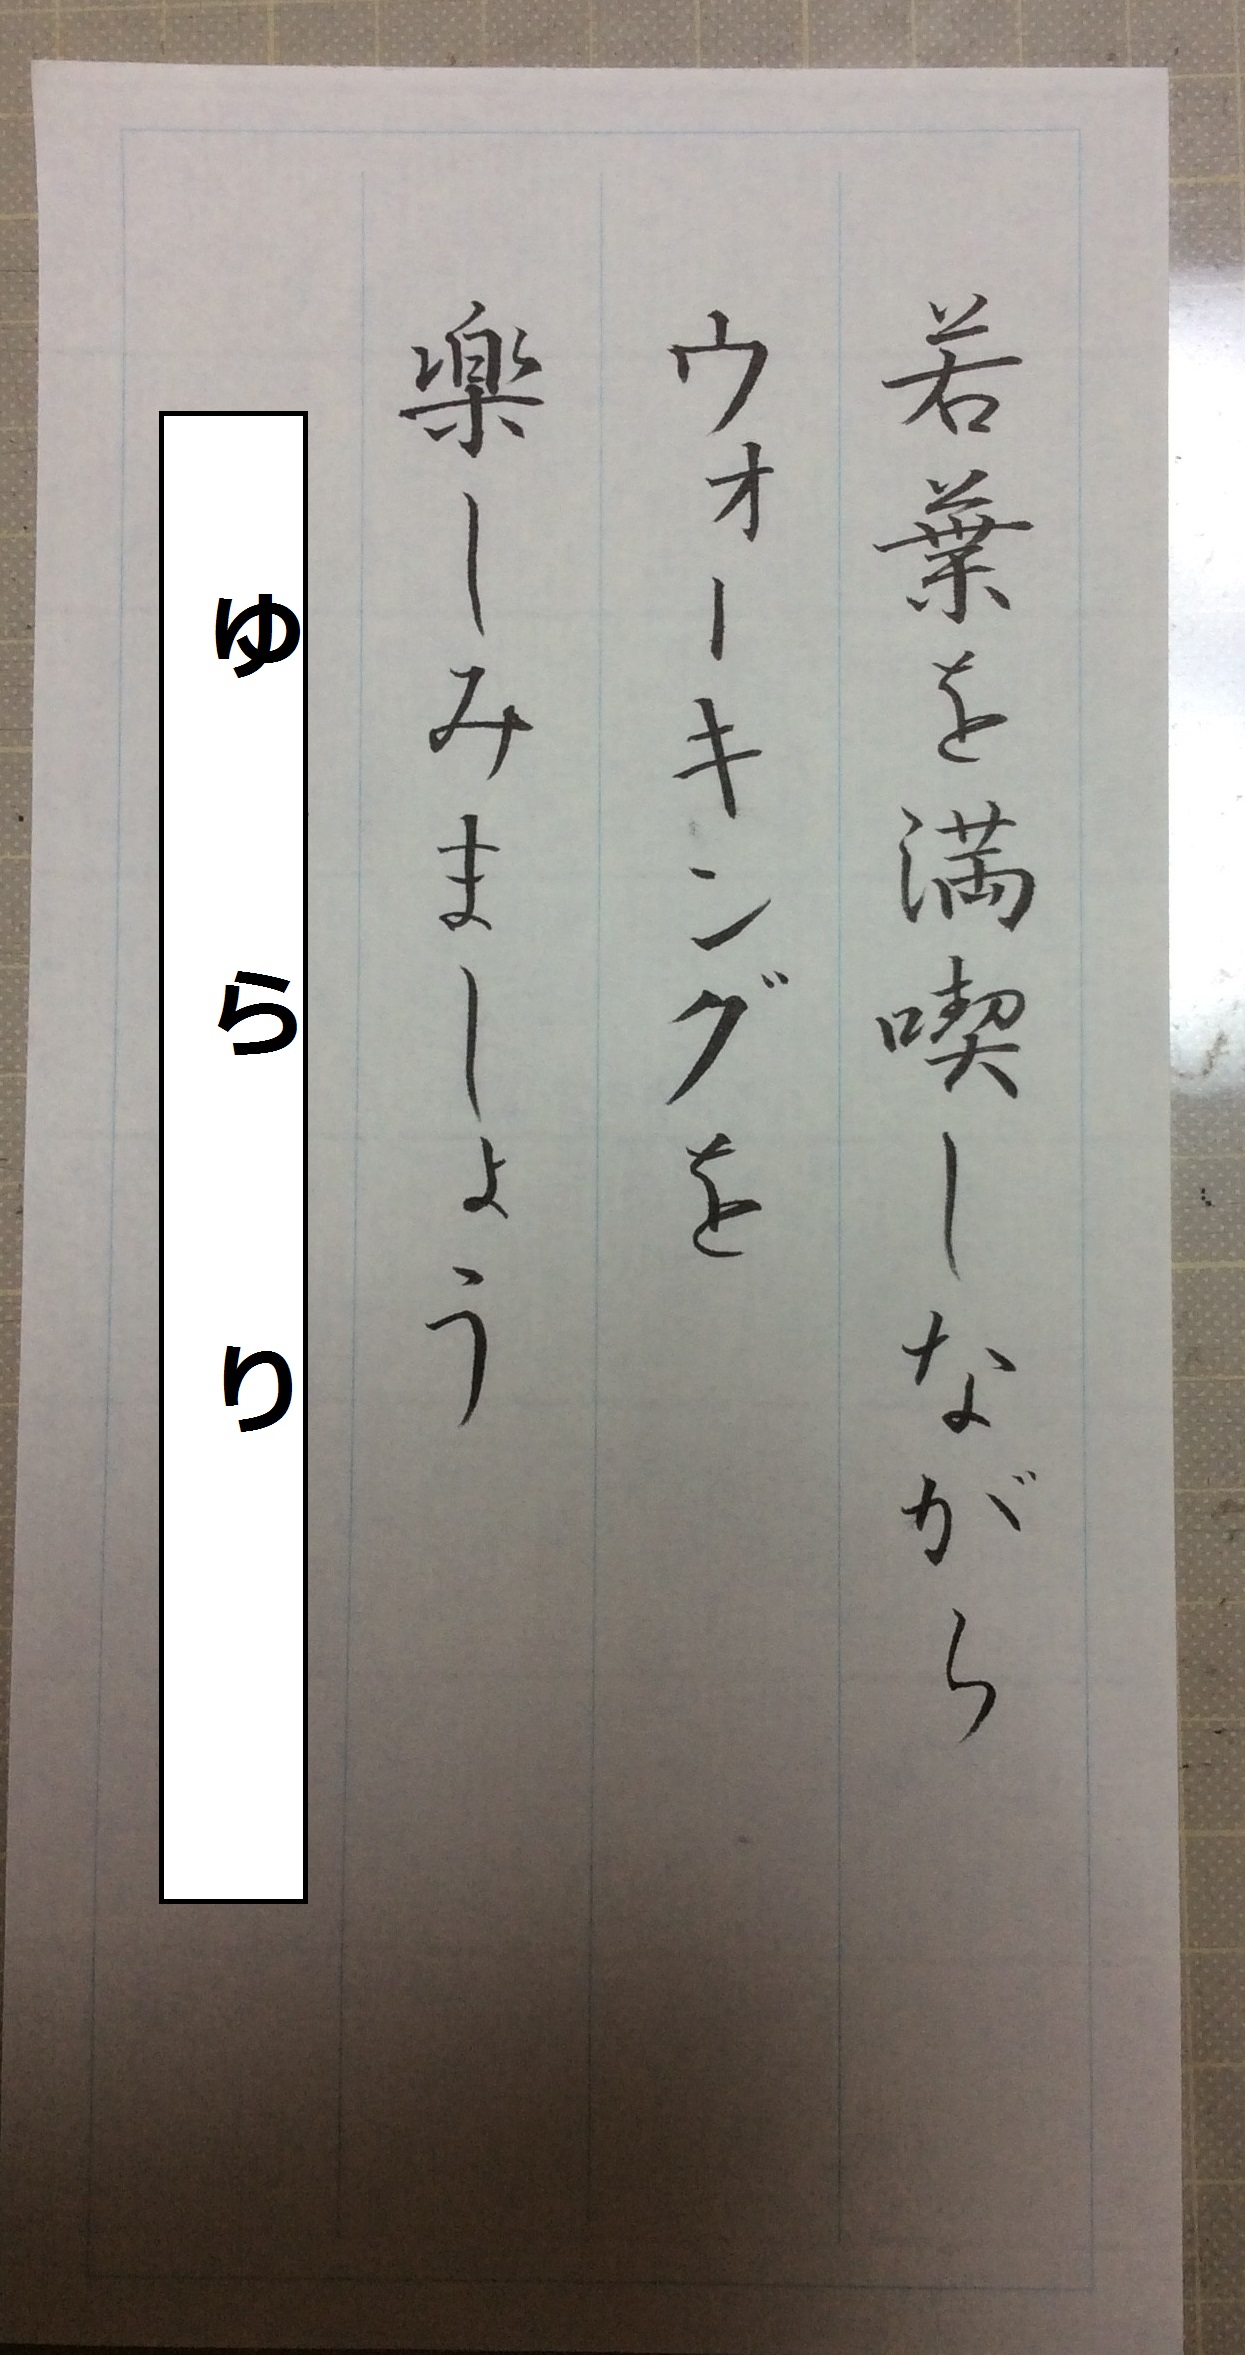 若葉を満喫しながら
ウォーキングを
楽しみましょう
ゆらり